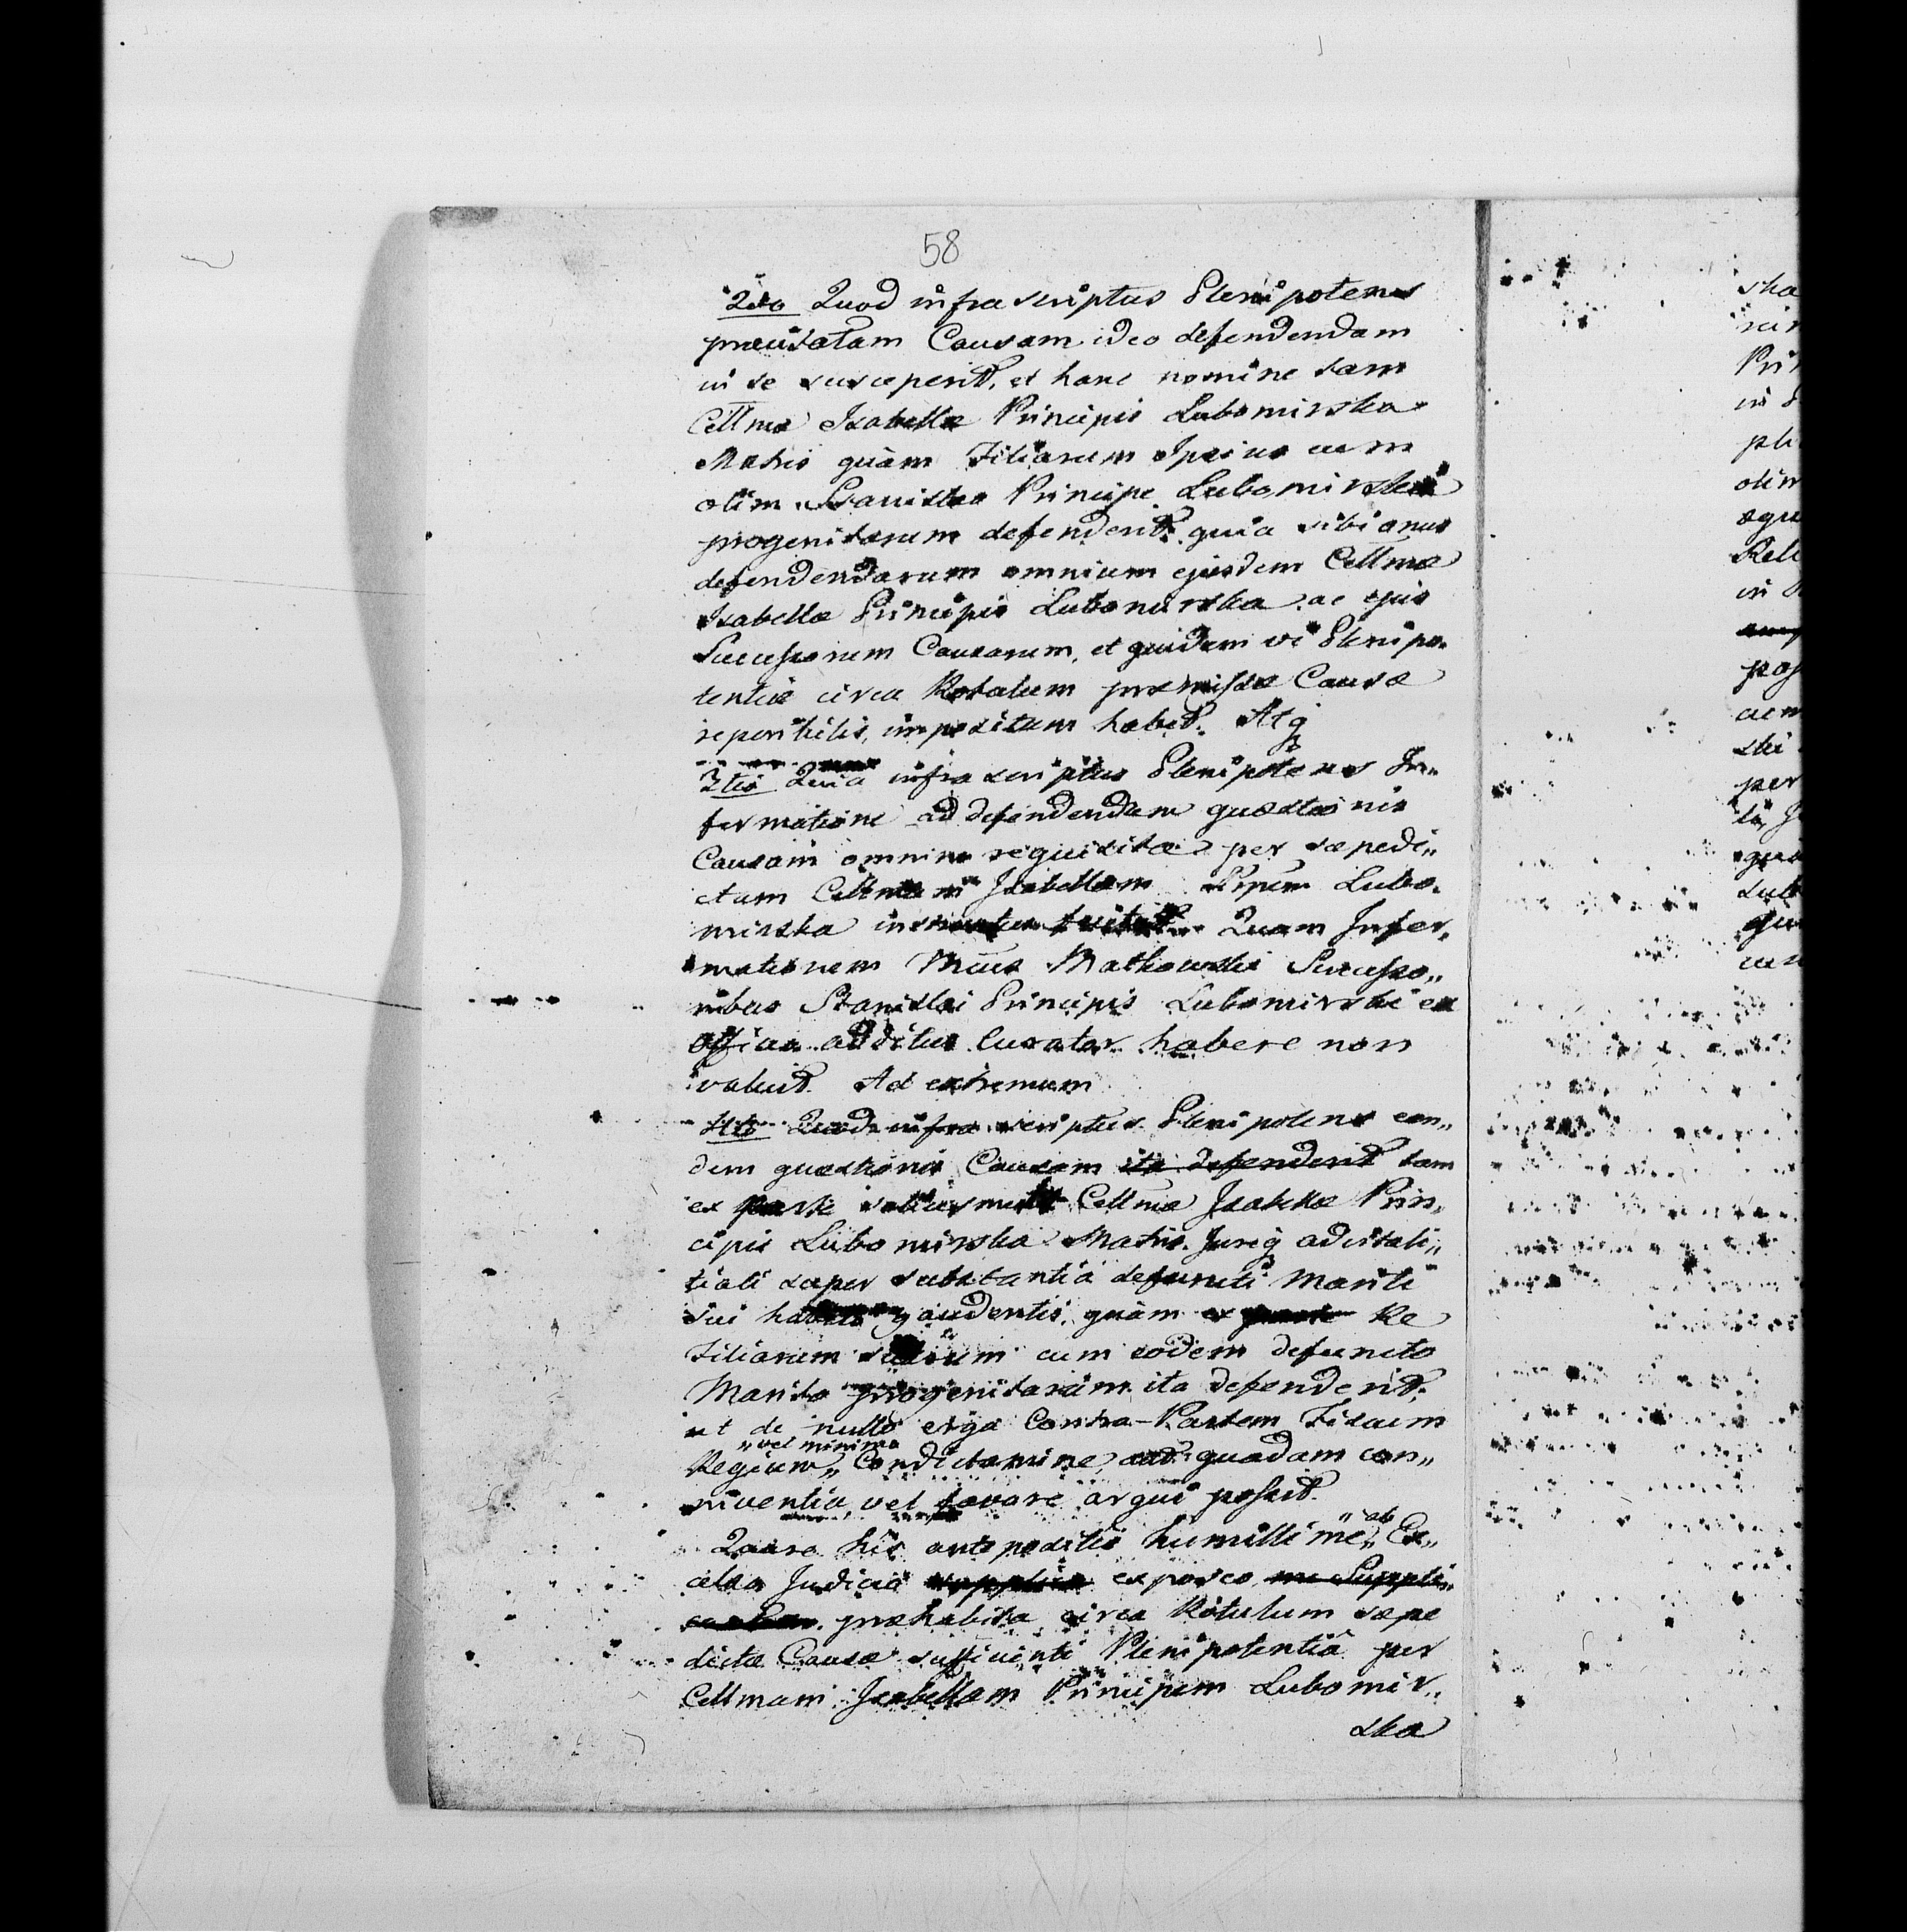 58
2do Quod infra scriptus Plenipotens
praecitatam Causam ideo defendendam
in se susceperit, et hanc nomine tam
Cellmae Isabellae Principis Lubomirska
Matris quàm Filiarum Ipsius cum
olim Stanislao Principe Lubomirski
progenitarum defenderit: quia sibi onus
defendendarum omnium ejusdem Cellmae
Isabellae Principis Lubomirska ac ejus
Successorum Causarum, et quidem vi Plenipo-
tentiae circa Rotulum praemissae Causae
reperibilis, impositum habet. Atq
3tio Quia infra scriptus Plenipotens In„
formatione ad defendendam quaestionis
Causam omnino requisita per saepedi„
ctam Cellmam Isabellam Ppem Lubo-
mirska Quam Infor„
mationem Mcus Matkowski Successo„
ribus Stanislai Principis Lubomirski ex
officio additus Curator habere non
valuit. Ad extremum
4to Quod infra scriptus Plenipotens ean„
dem quaestionis Causam ita defenderit tam
ex parte Cellmae Isabellae Prin„
cipis Lubomirska Matris Jureq advitali„
tiali super substantia defuncti Mariti
sui gaudentis, quàm ex parte Re
Filiarum cum eodem defuncto
Marito progenitarum ita defenderit,
ut de nullo erga Contra-Partem Fiscum
„vel minimo
Regium„ Condictamine, quadam con„
niventia, vel favore argui possit.
Quare his antepositis humillime„ „ab Ex„
celso Judicio exposco, me Suppli„
praehabita circa Rotulum saepe
dictae Causae sufficienti Plenipotentiâ per
Cellmam Isabellam Principem Lubomir„
ska
ska
Pri
in
olim
Rela
in
per
Lub